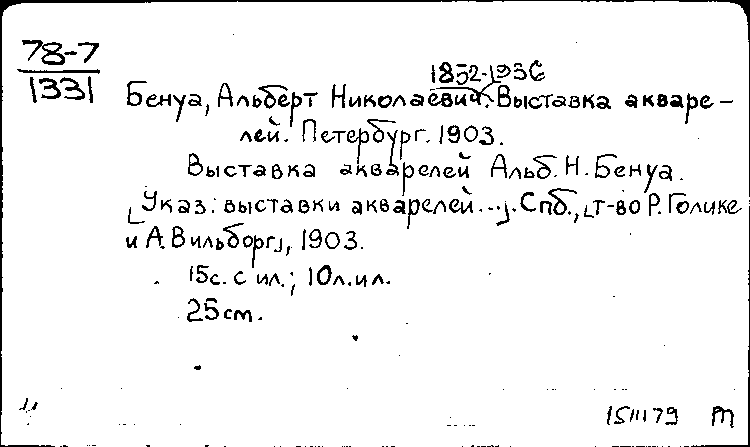 78-7
1331
1852-1936
Бенуа, Альберт Николаевич. Выставка акваре-
лей. Петербург. 1903.
Выставка акварелей Альб. Н. Бенуа.
[Указ: выставки акварелей...]. Спб., [т-во Р. Голике
и А. Вильборг], 1903.
15с. с ил.; 10л. ил.
25см.
15III79 М